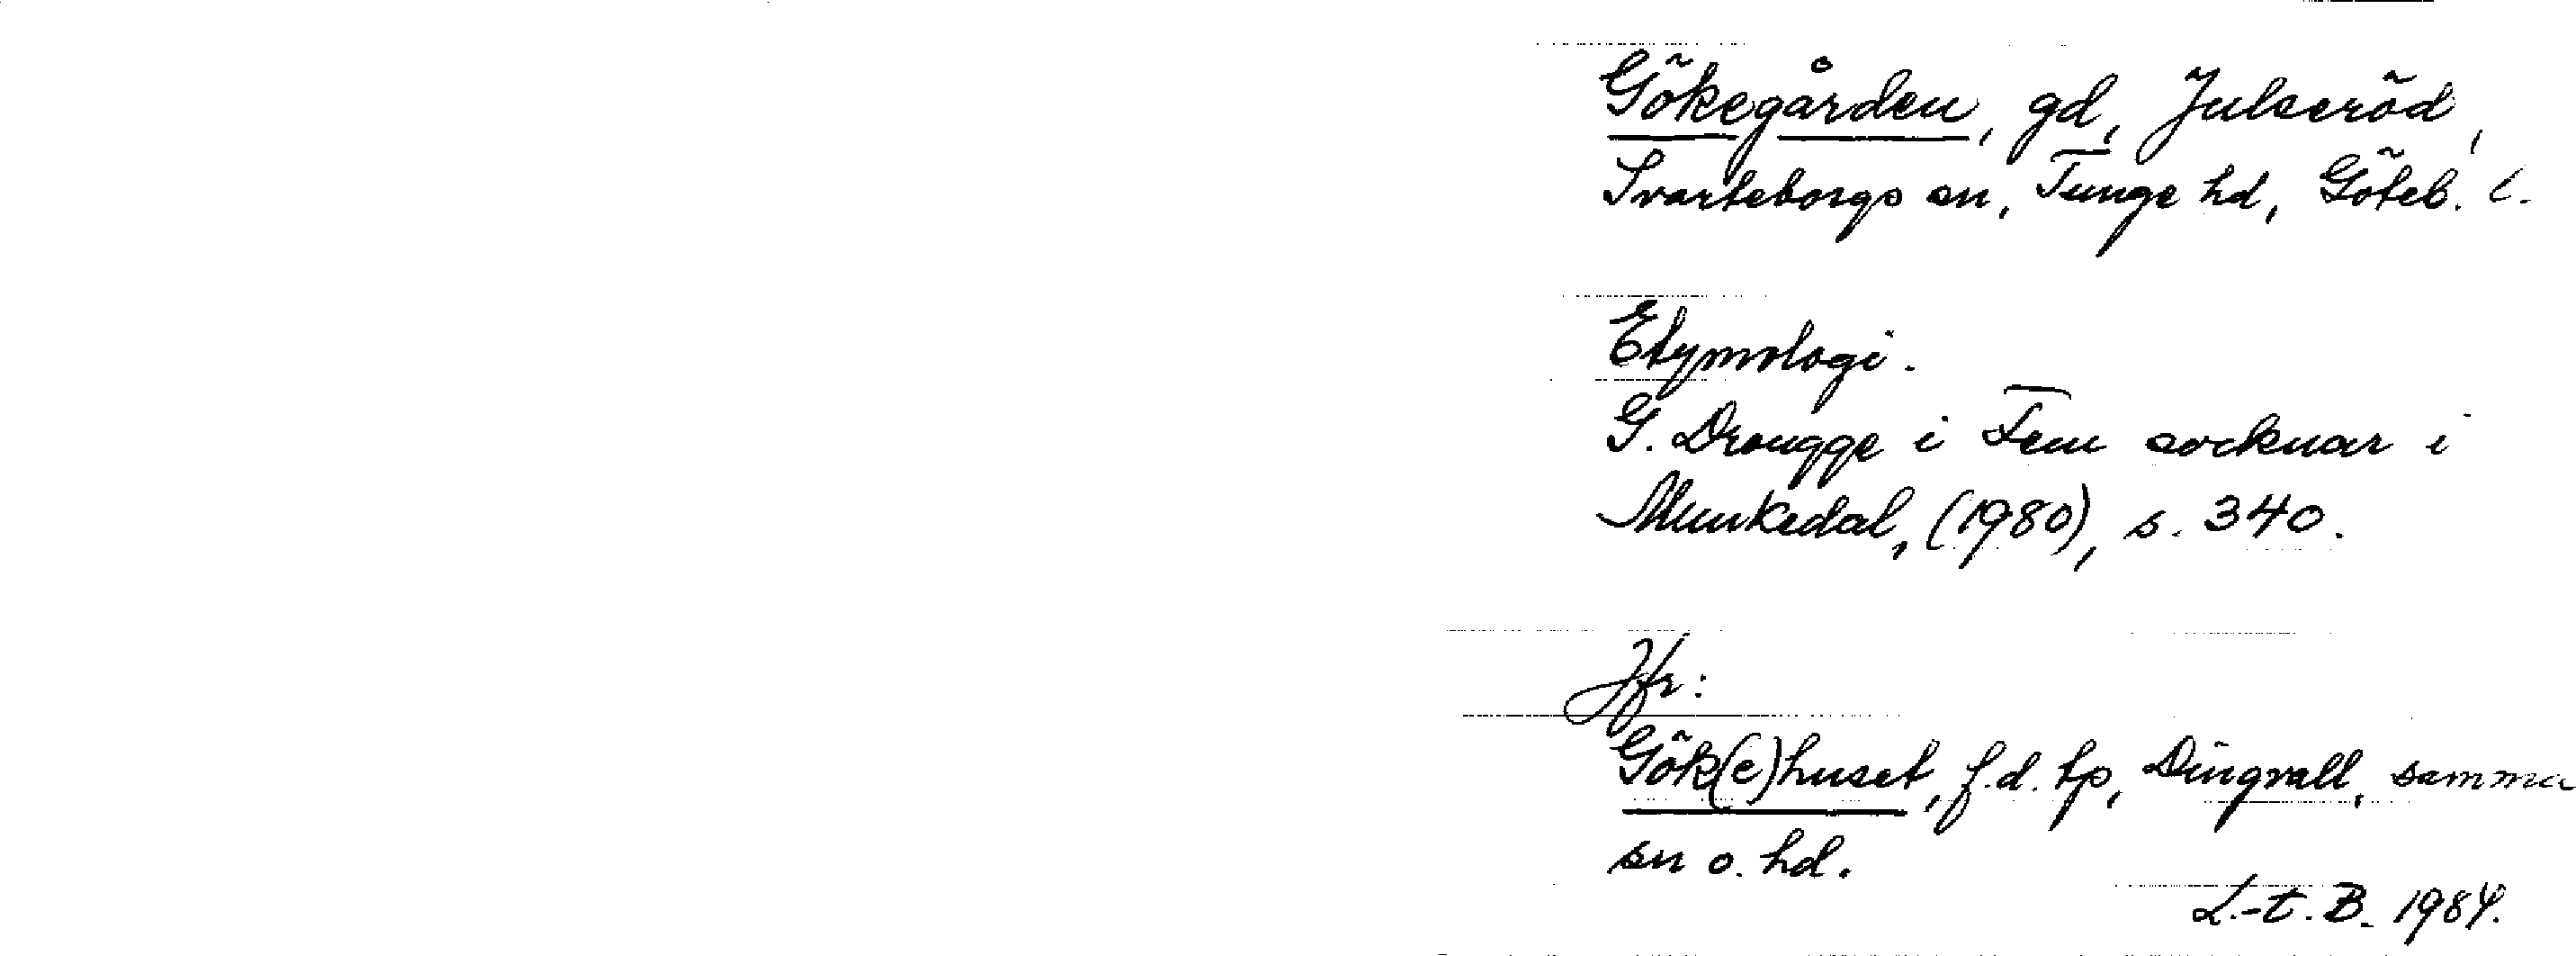 Gökegården, gd, Julseröd,
Svarteborgs sn, Tunge hd, Göteb. l.
Etymologi.
G. Drougge i Fem socknar i
Munkedal, (1980), s. 340.
Jfr:
Gök(e)huset, f.d. tp, Dingvall, samma
sn o. hd.
L.-t. B. 1984.